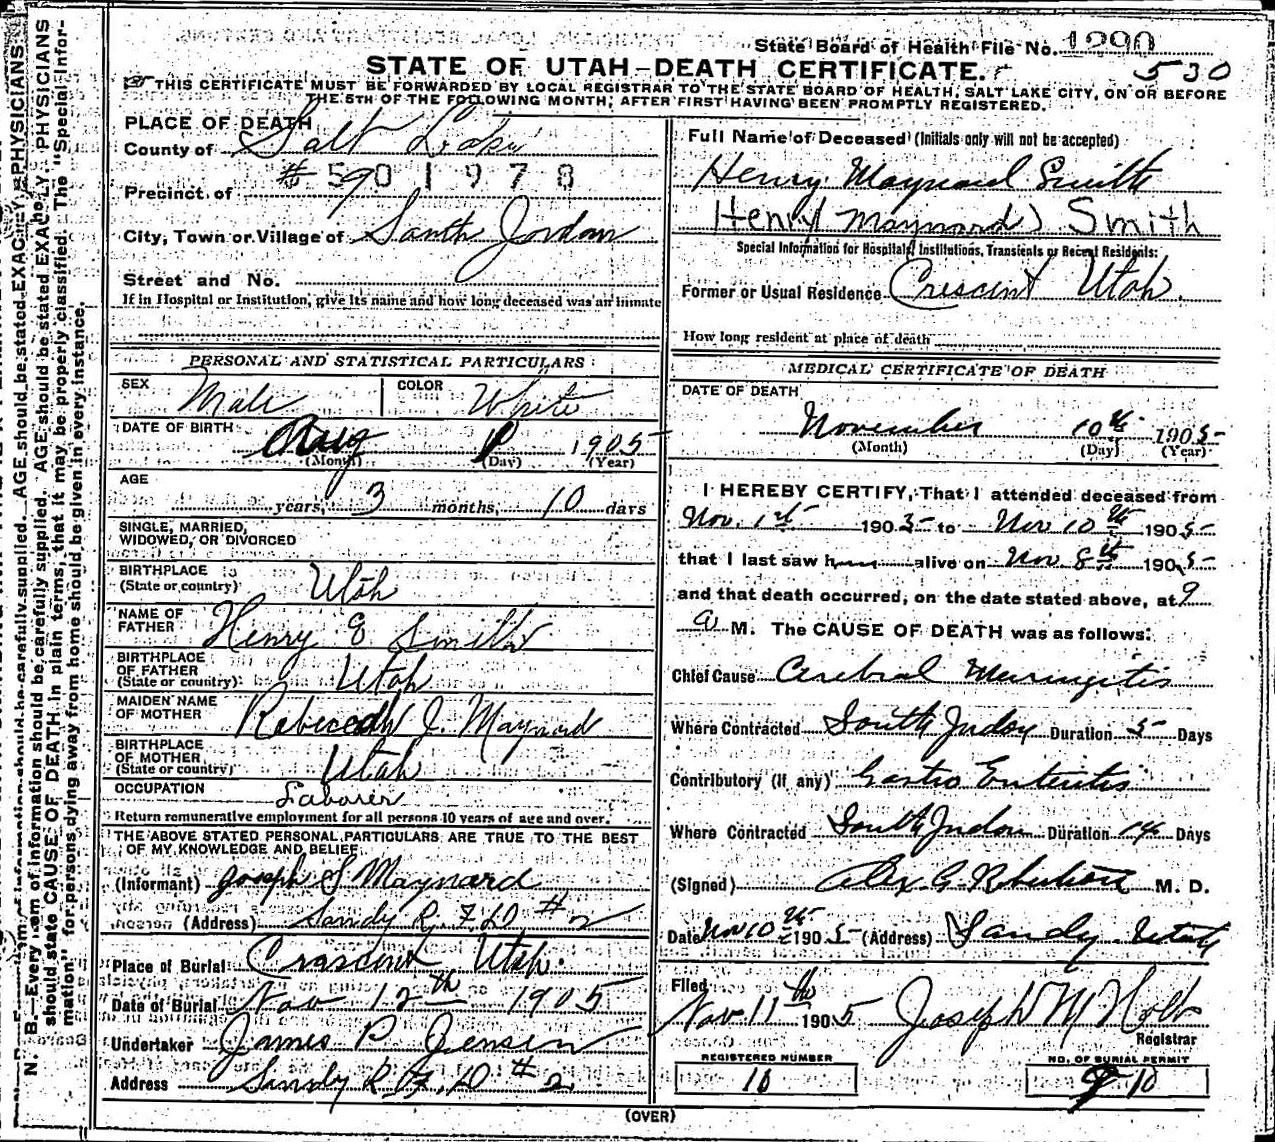 State Board of Health File No. 1290
530
STATE OF UTAH—DEATH CERTIFICATE.
THIS CERTIFICATE MUST BE FORWARDED BY LOCAL REGISTRAR TO THE STATE BOARD OF HEALTH, SALT LAKE CITY, ON OR BEFORE
THE 5TH OF THE FOLLOWING MONTH, AFTER FIRST HAVING BEEN PROMPTLY REGISTERED.
PLACE OF DEATH
County of Salt Lake
# 59 01978
Precinct of
City, Town or Village of South Jordan
Street and No.
If in Hospital or Institution, give its name and how long deceased was an inmate
PERSONAL AND STATISTICAL PARTICULARS
SEX Male COLOR White
DATE OF BIRTH Aug 1905
(Month) (Day) (Year)
AGE
years, 3 months, 10 days
SINGLE, MARRIED,
WIDOWED, OR DIVORCED
BIRTHPLACE
(State or country) Utah
NAME OF
FATHER Henry E Smith
BIRTHPLACE
OF FATHER
(State or country) Utah
MAIDEN NAME
OF MOTHER Rebeccah J. Maynard
BIRTHPLACE
OF MOTHER
(State or country) Utah
OCCUPATION Laborer
Return remunerative employment for all persons 10 years of age and over.
THE ABOVE STATED PERSONAL PARTICULARS ARE TRUE TO THE BEST
OF MY KNOWLEDGE AND BELIEF
(Informant) Joseph S Maynard
(Address) Sandy R.F.D # 2
Place of Burial Crascent Utah.
Date of Burial Nov 12th 1905
Undertaker James P Jensen
Address Sandy R.F.D # 2
Full Name of Deceased (Initials only will not be accepted)
Henry Maynard Smith
Henry (Maynard) Smith
Special Information for Hospitals, Institutions, Transients or Recent Residents:
Former or Usual Residence Crescent Utah.
How long resident at place of death
MEDICAL CERTIFICATE OF DEATH
DATE OF DEATH
November 10th 1905
(Month) (Day) (Year)
I HEREBY CERTIFY, That I attended deceased from
Nov. 1st 1905 to Nov 10th 1905
that I last saw him alive on Nov 8th 1905
and that death occurred, on the date stated above, at 9
a M. The CAUSE OF DEATH was as follows:
Chief Cause Cerebral Meningitis
Where Contracted South Jordan Duration 5 Days
Contributory (if any) Gastro Enteritis
Where Contracted South Jordan Duration 14 Days
(Signed) Alex G. Robertson M. D.
Date Nov 10th 1905 (Address) Sandy Utah
Filed
Nov 11th 1905 Joseph M Holt
Registrar
REGISTERED NUMBER
10
NO. OF BURIAL PERMIT
10
(OVER)
N. B.—Every item of information should be carefully supplied. AGE should be stated EXACTLY. PHYSICIANS
should state CAUSE OF DEATH in plain terms, that it may be properly classified. The "Special Infor-
mation" for persons dying away from home should be given in every instance.